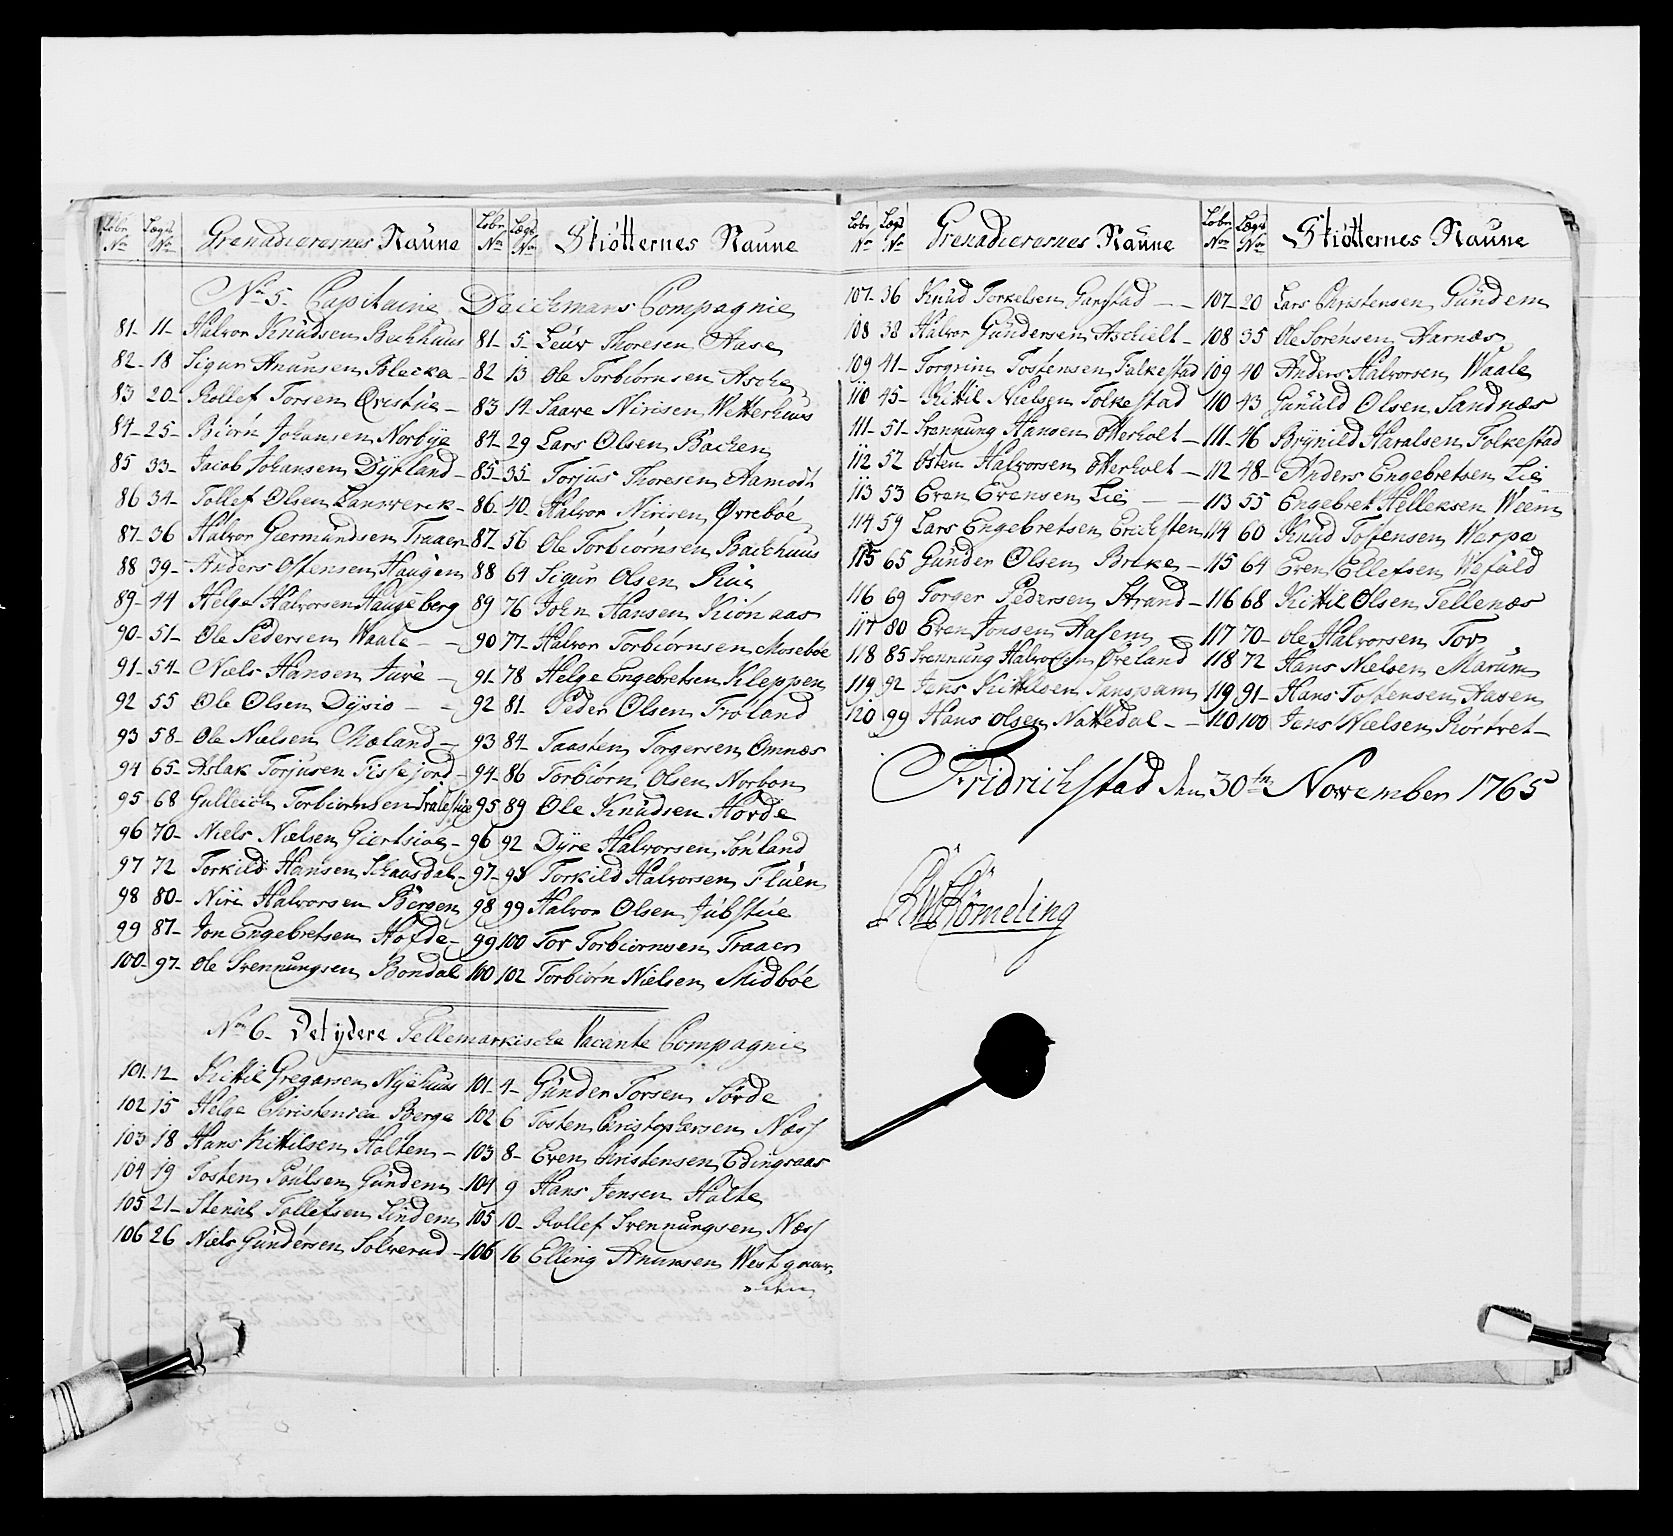 Løbe No Lægs No Grenadierernes Naune Løbe No Lægs No Skiøtternes Naune
No 5. Capitaine Deichmans Compagnie
81- 11- Halvor Knüdsen Bechhuus 81- 5- Leüv Thoresen Aase
82- 18 Sigur Anunsen Blecka- 82 13 Ole Torbiörnsen Asche
83 20- Rollef Torsen Qvistüe- 83 14- Saave Nirisen Wetterhuus
84- 25- Biörn Johansen Norbye 84- 29 Lars Olsen Backen
85 33- Jacob Johansen Dyrland- 85- 35- Torjus Thoresen Aamodt
86 34- Tollef Olsen Lansverck- 86- 40- Halvor Nirisen Øvreböe
87- 36 Halvor Giermundsen Traaen 87- 56 Ole Torbiörnsen Backhuus
88 39- Anders Ostensen Haugen 88 64 Sigur Olsen Rüe
89- 44 Helge Halvorsen Haugeberg 89 76 John Hansen Kionaas
90- 51- Ole Pedersen Waale - 90 77- Halvor Torbiörnsen Moseböe
91- 54- Niels Hansen Juve - 91- 78 Helge Engebretsen Kleppen
92 55 Ole Olsen Dysio - - 92 81- Peder Olsen Fröland
93 58- Ole Nielsen Mæland- 93 84- Taasten Torgersen Omnæs
94 65- Aslak Torjusen Fissejord- 94- 86 Torbiörn Olsen Norbon
95 68 Gulleich Torbiörnsen 95 89 Ole Knüdsen Hörde
96 70- Niels Nielsen Giertsioe- 96 92 Dyre Halvorsen Sönland
97 72 Torkild Hansen Schaasdal- 97- 98 Torkild Halvorsen Flüen
98 80- Niri Halvorsen Bergen 98 99 Halvor Olsen Jübstüe
99 87- Jon Engebretsen Hofde- 99 100 Tov Torbiörnsen Traaen
100- 97- Ole Svennungsen Bondal 100 102 Torbiörn Nielsen Midböe
No 6- Det ydere Tellemarkische Vacante Compagnie
101- 12- Kittil Gregarsen Nyehuus 101- 4- Gunder Torsen Sörde
102 15 Helge Christensen Berge 102 6 Tosten Christophersen Næss
103 18 Hans Kittilsen Holten- 103 8- Even Christensen Edingsaas
104 19 Tosten Poulsen Gündem- 104 9 Hans Jensen Holte
105 21- Stenül Tollefsen Lindem 105 10- Rollef Svennungsen Næss
106 26 Niels Gündersen Solverud- 106 16 Elling Anunsen Westgaar
Løbe No Lægs No Grenadierernes Naune Løbe No Lægs No Skiøtternes Naune
107- 36 Knüd Torkelsen Garstad - - 107- 20 Lars Christensen Gündem
108 38 Halvor Gündersen Aschielt- 108 35 Ole Sörensen Aarnæs
109 41- Torgrim Tostensen Falkestad 109 40 Anders Halvorsen Waale
110 45- Kittil Nielsen Folkestad 110 43 Gunüld Olsen Sandnæs
111- 51- Svennung Hansen Otterholt- 111- 46 Brynild Haralsen Folkestad
112 52 Østen Halvorsen Otterholt- 112 48- Anders Engebretsen Lie
113 53 Even Evensen Lie - - 113 55 Engebret Helleksen Weem
114 59 Lars Engebretsen Erichsten 114 60 Knud Tostensen Warpe
115 65 Günder Olsen Breke- 115 64 Even Ellefsen Wefald
116 69 Torger Pedersen Strand- 116 68 Kittil Olsen Tellenæs
117 80 Even Jonsen Aasem - 117 70- Ole Halvorsen Tov
118 85 Svennung Halvorsen Øreland 118 72 Hans Nielsen Marum
119 92 Jens Kittilsen Sanspam 119 91- Hans Tostensen Aasen
120 99 Hans Olsen Nattedal- - 120 100 Jens Nielsen Rörtvet-
Fridrichstad den 30te November 1765
Römeling